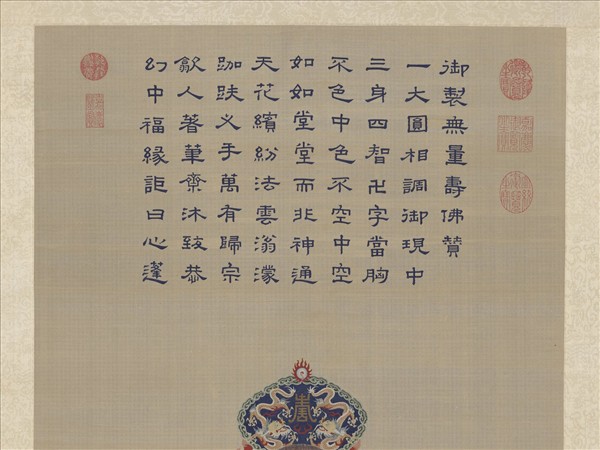 御製無量壽佛贊
一大圓相調御現中
三身四智卍字當胸
不色中色不空中空
如如堂堂而非神通
天花繽紛法雲滃濛
跏趺叉手萬有歸宗
歙人著筆齋沐致恭
幻中福緣詎曰心蓬
壽